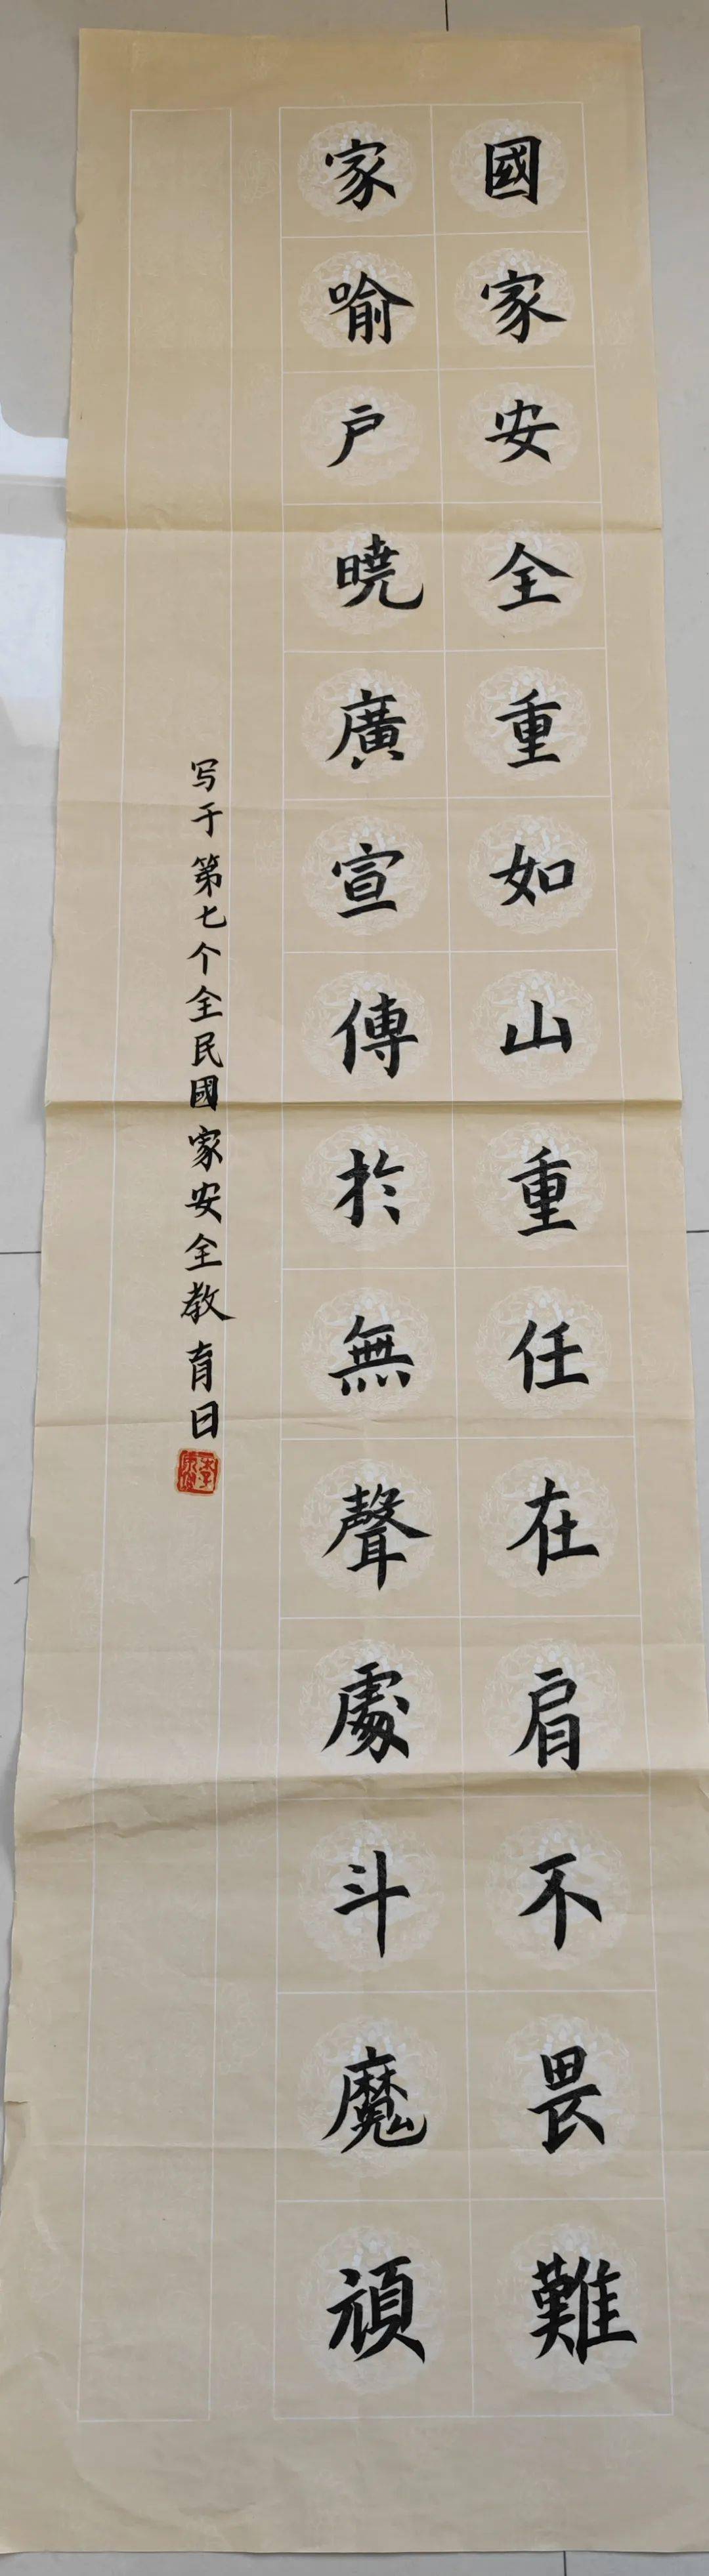 國家安全重如山重任在肩不畏難
家喻戶曉廣宣傳於無聲處斗魔頑
写于第七个全民國家安全教育日